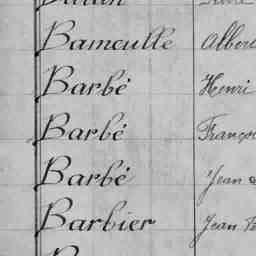 Bameulle Alber
Barbé Henri
Barbé Franço
Barbé Jean
Barbier Jean